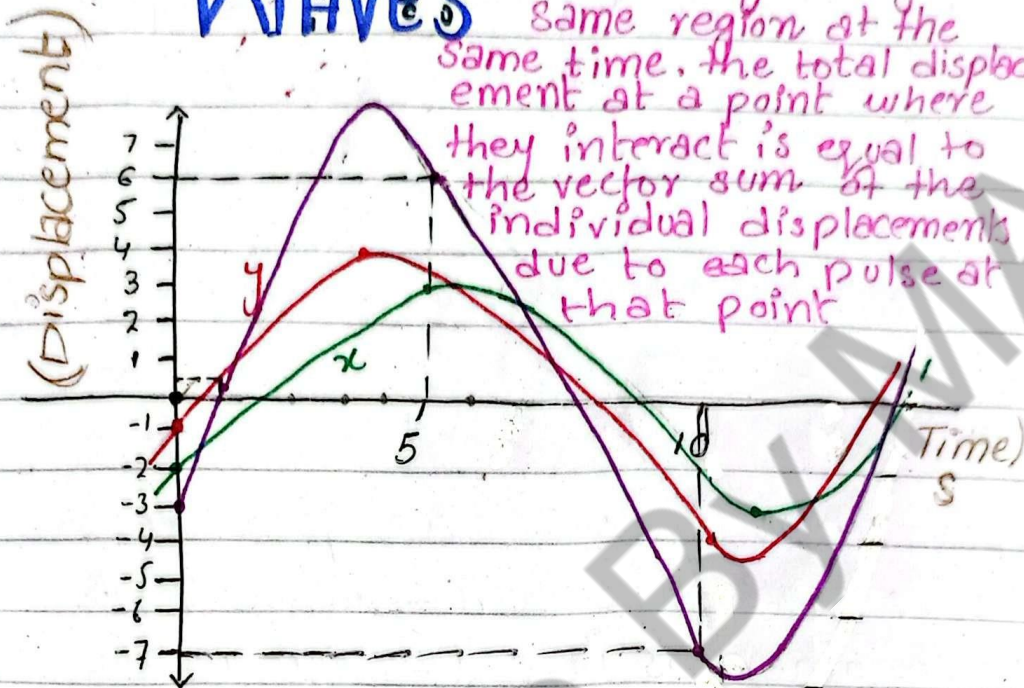 WAVES
same region at the
same time. the total displac
ement at a point where
they interact is equal to
the vector sum of the
individual displacements
due to each pulse at
that point
(Displacement)
7
6
5
4
3
2
1
-1
-2
-3
-4
-5
-6
-7
y
x
5
Time)
s
BY MA